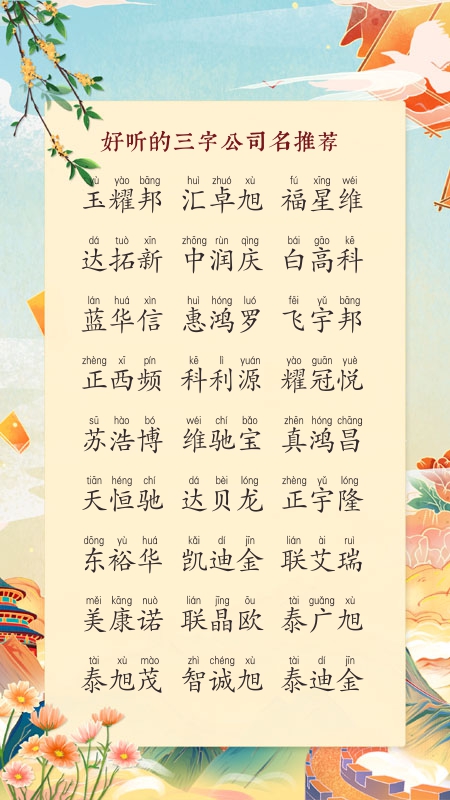 好听的三字公司名推荐
yù yào bāng huì zhuó xù fú xīng wéi
玉耀邦 汇卓旭 福星维
dá tuò xīn zhōng rùn qìng bái gāo kē
达拓新 中润庆 白高科
lán huá xìn huì hóng luó fēi yǔ bāng
蓝华信 惠鸿罗 飞宇邦
zhèng xī pín kē lì yuán yào guān yuè
正西频 科利源 耀冠悦
sū hào bó wéi chí bǎo zhēn hóng chāng
苏浩博 维驰宝 真鸿昌
tiān héng chí dá bèi lóng zhèng yǔ lóng
天恒驰 达贝龙 正宇隆
dōng yù huá kǎi dí jīn lián ài ruì
东裕华 凯迪金 联艾瑞
měi kāng nuò lián jīng ōu tài guǎng xù
美康诺 联晶欧 泰广旭
tài xù mào zhì chéng xù tài dí jīn
泰旭茂 智诚旭 泰迪金